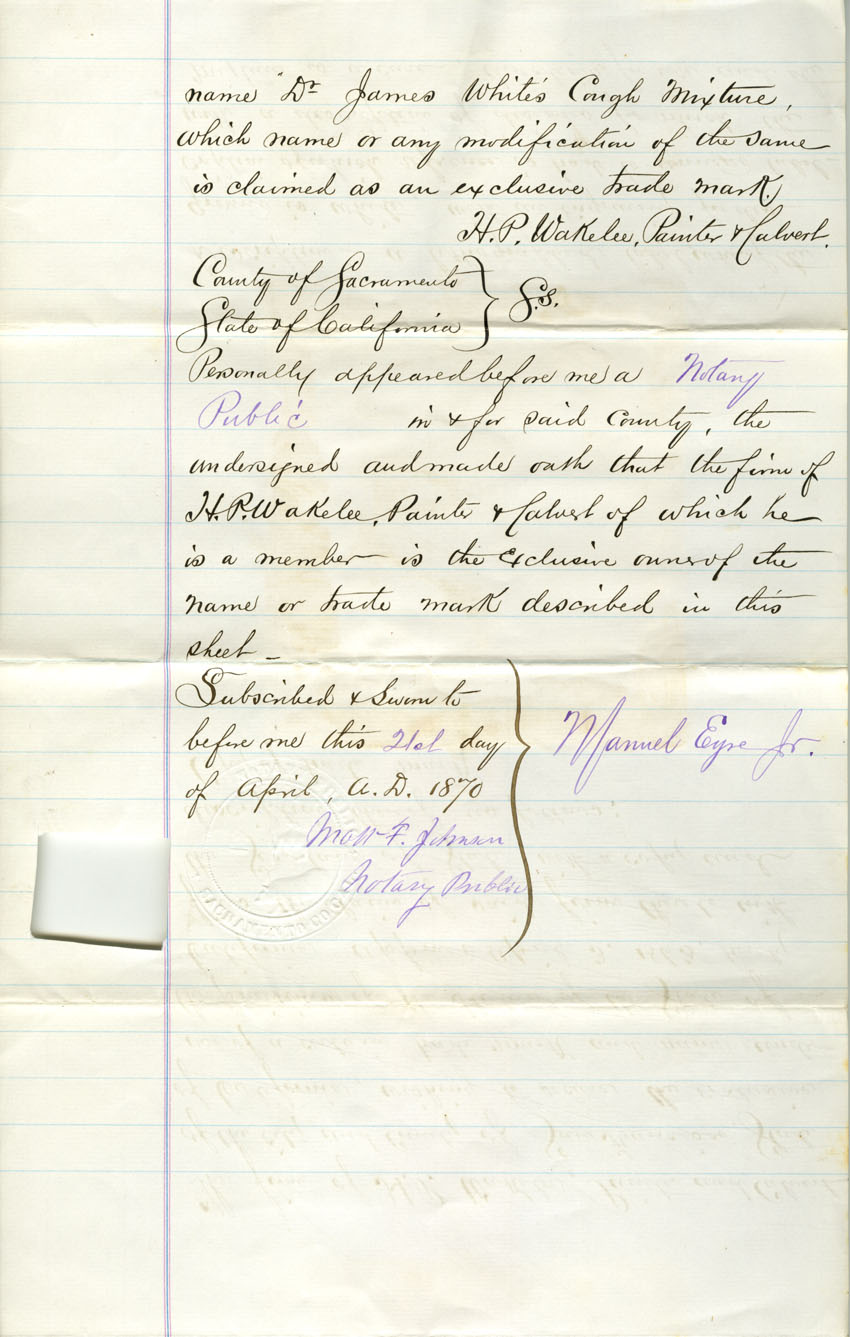 name "Dr James White's Cough Mixture,
which name or any modification of the same
is claimed as an exclusive trade mark.
H. P. Wakelee, Painter & Calvert.
County of Sacramento
State of California } S.s.
Personally appeared before me a Notary
Public in & for said County, the
undersigned and made oath that the firm of
H. P. Wakelee, Painter & Calvert of which he
is a member is the Exclusive owner of the
name or trade mark described in this
sheet —
Subscribed & Sworn to
before me this 21st day
of April, A. D. 1870
Matt F. Johnson
Notary Public
Manuel Eyre Jr.
SACRAMENTO CO.